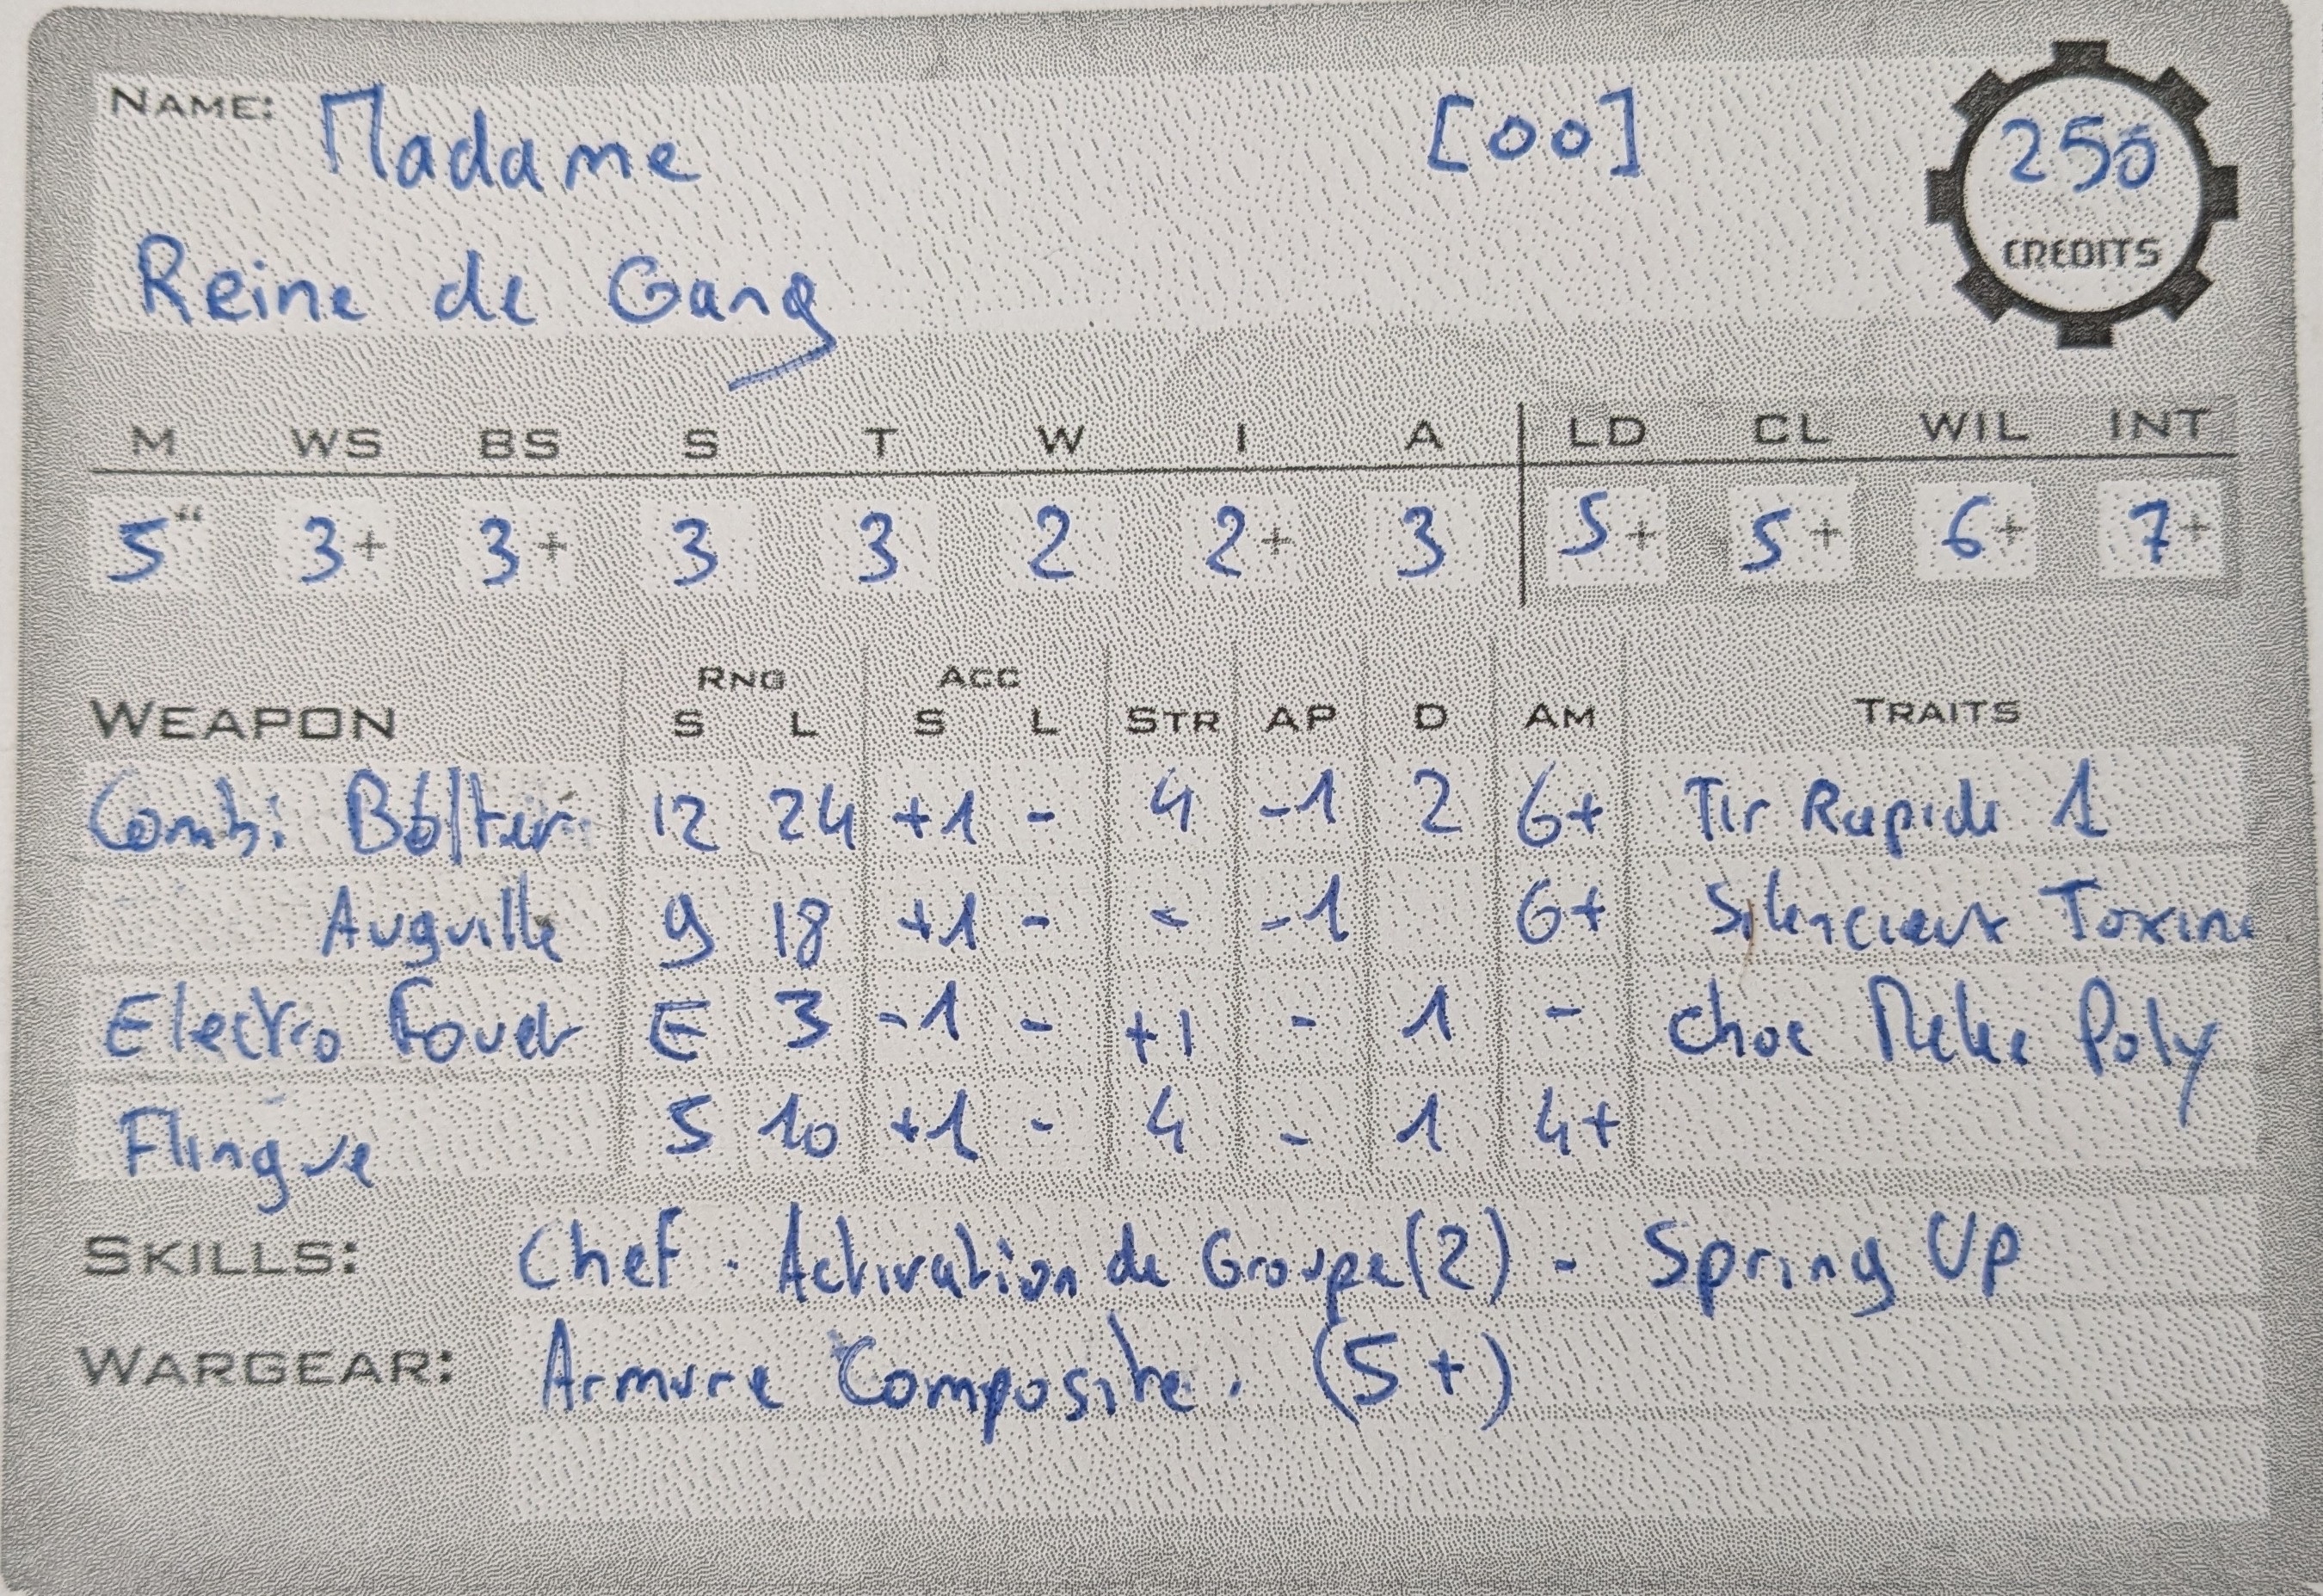 NAME: Madame [00] 250
CREDITS
Reine de Gang
M WS BS S T W I A LD CL WIL INT
5" 3+ 3+ 3 3 2 2+ 3 5+ 5+ 6+ 7+
RNG ACC
WEAPON S L S L STR AP D AM TRAITS
Combi Bolter 12 24 +1 - 4 -1 2 6+ Tir Rapide 1
Aiguille 9 18 +1 - - -1 6+ Silencieux Toxine
Electro Fouet E 3 -1 - +1 - 1 - Choc Melee Poly
Flingue 5 10 +1 - 4 - 1 4+
SKILLS: Chef . Activation de Groupe (2) - Spring Up
WARGEAR: Armure Composite . (5+)